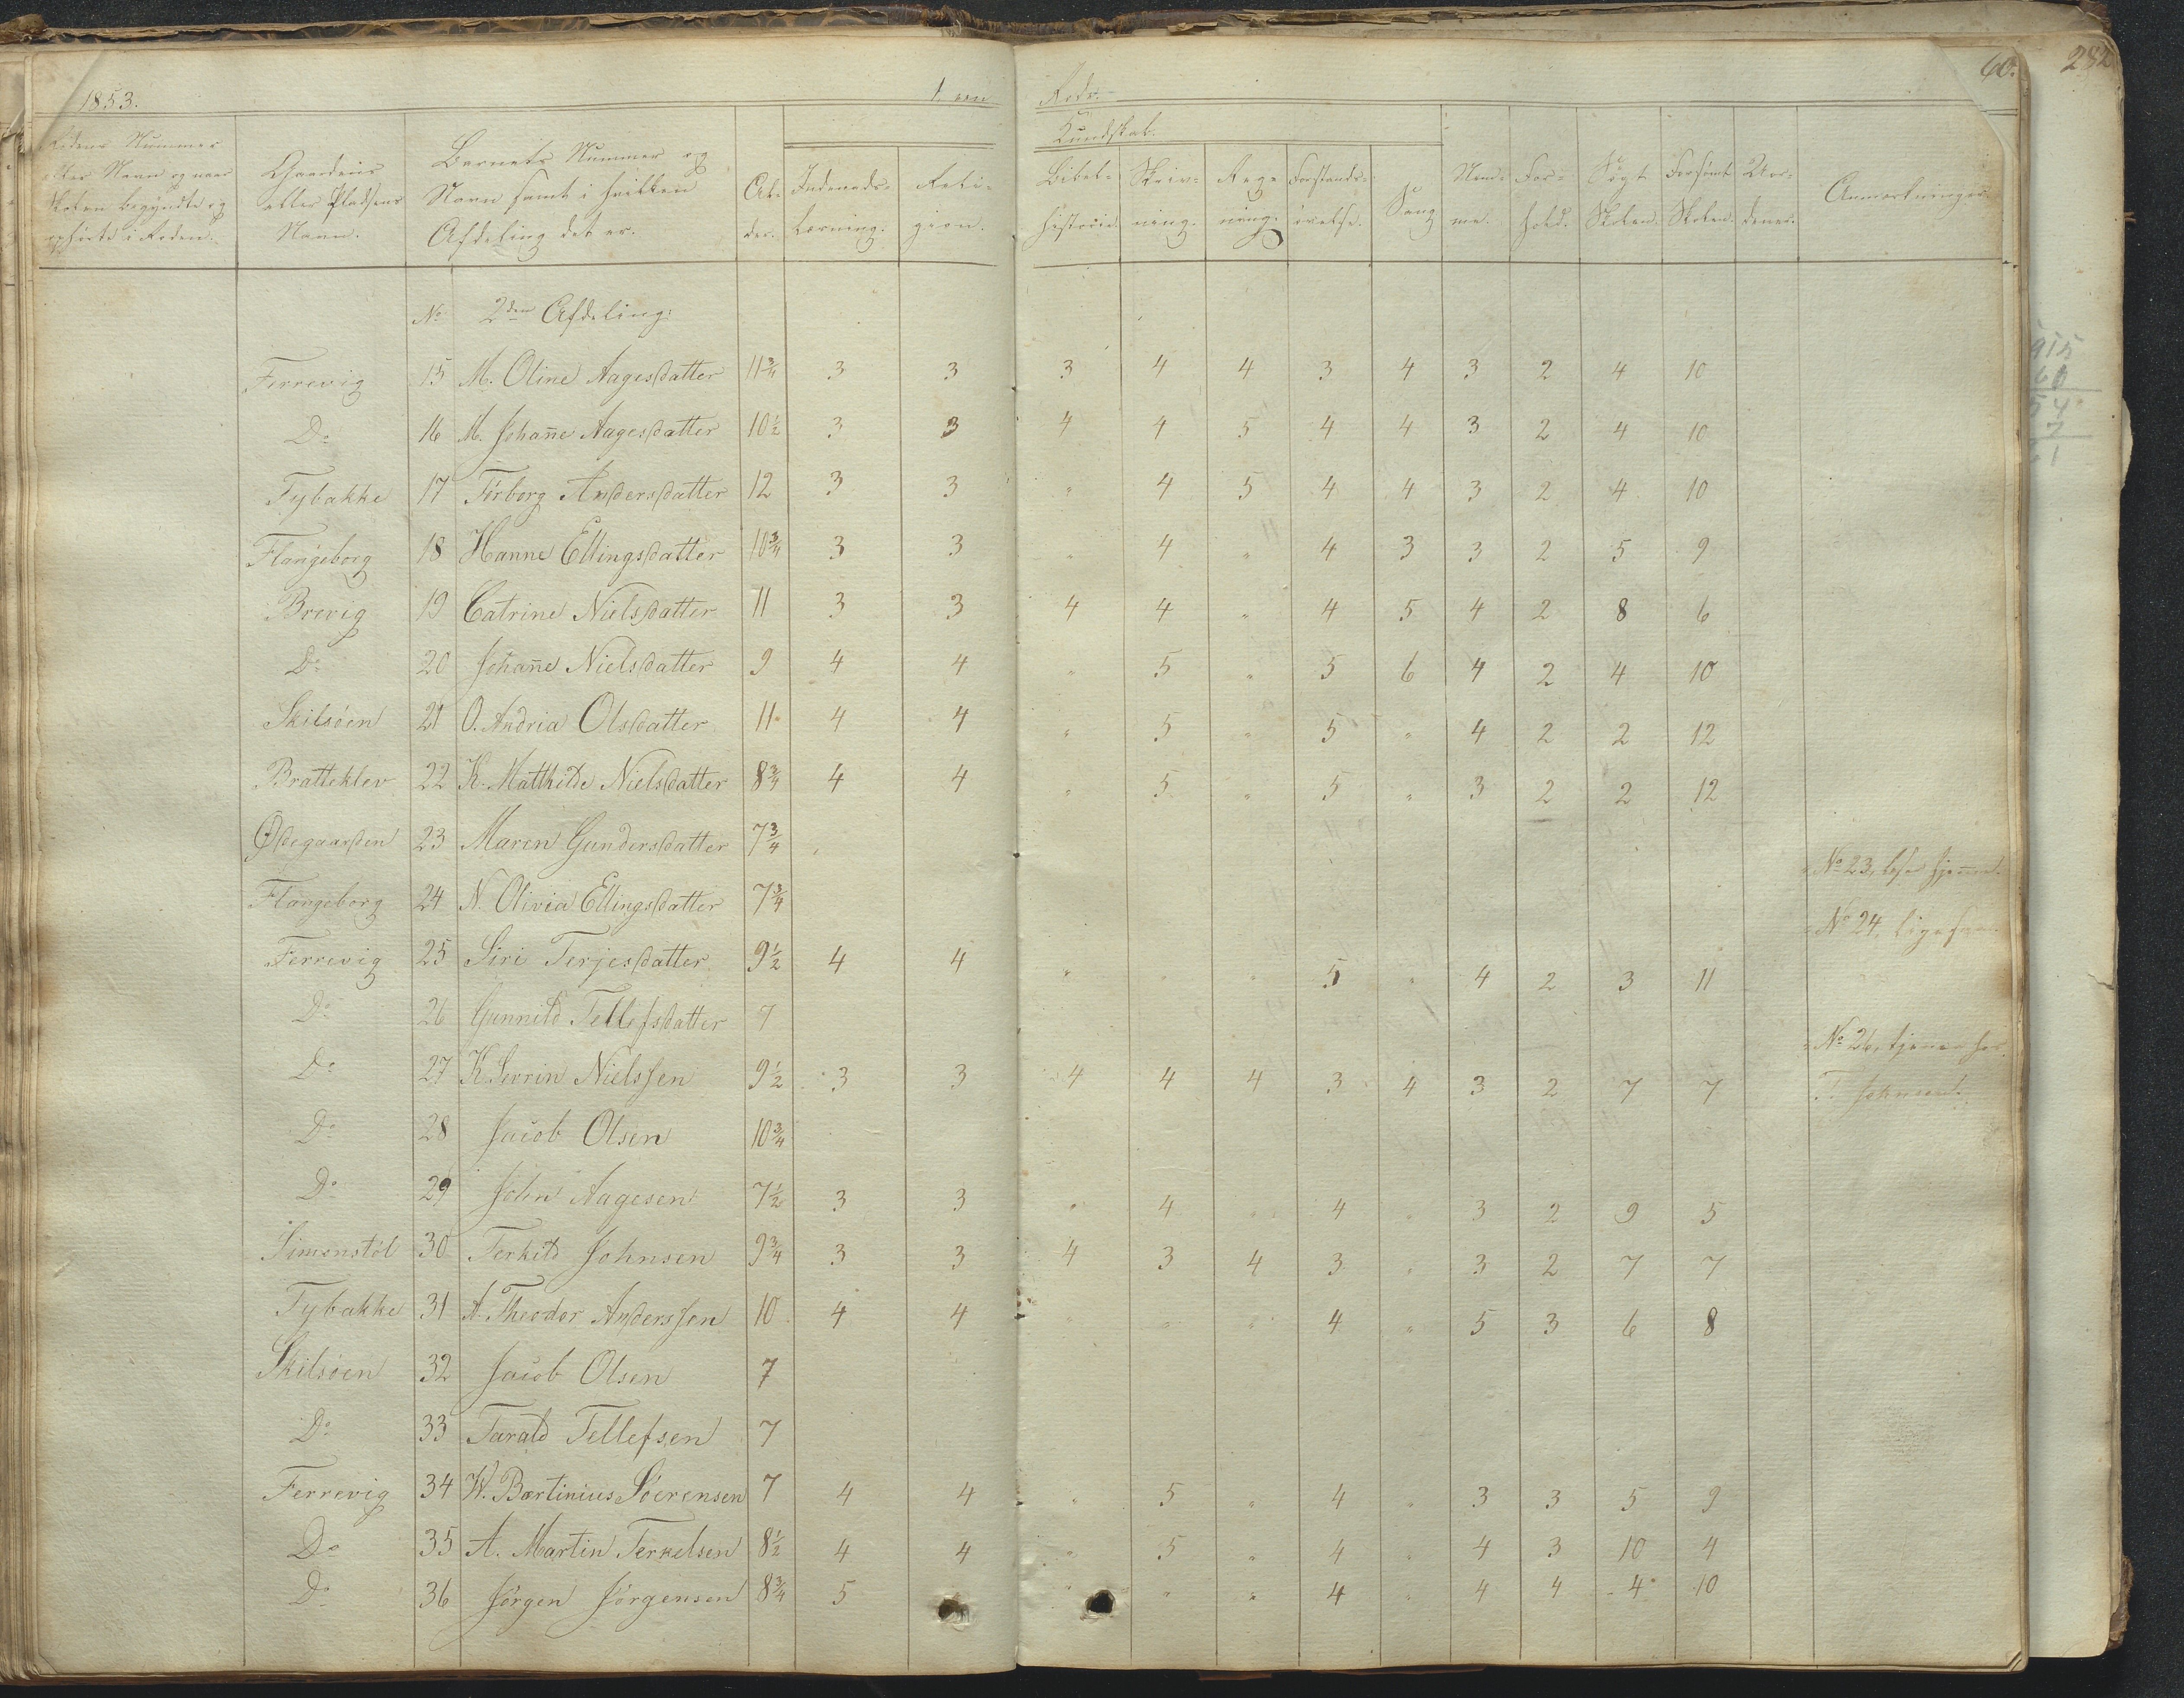 282
60.
1853. 1. ven Rode.
Kundskab.
Rodens Nummer eller Navn og naar Skolen begyndte og ophørte i Roden.
Gaardens eller Pladsens Navn.
Barnets Nummer og Navn samt i hvilken Afdeling det er.
Al-der.
Indenads-Læsning.
Reli-gion.
Bibel-historie.
Skriv-ning.
Reg-ning.
Forstands-øvelse.
Sang
Nem-me.
For-hold.
Søgt Skolen.
Forsømt Skolen.
Anmærkninger.
No 2den Afdeling:
Ferrevig 15 M. Oline Aagesdatter 11 3/4 3 3 3 4 4 3 4 3 2 4 10
Do 16 M. Johan̄e Aagesdatter 10 1/2 3 3 4 4 5 4 4 3 2 4 10
Tybakke 17 Tørborg Andersdatter 12 3 3 " 4 5 4 4 3 2 4 10
Flangeborg 18 Hanne Ellingsdatter 10 3/4 3 3 " 4 " 4 3 3 2 5 9
Brevig 19 Catrine Nielsdatter 11 3 3 4 4 " 4 5 4 2 8 6
Do 20 Johan̄e Nielsdatter 9 4 4 " 5 " 5 6 4 2 4 10
Skilsøen 21 O. Andria Olsdatter 11 4 4 " 5 " 5 " 4 2 2 12
Bratteklev 22 K. Matthilde Nielsdatter 8 3/4 4 4 " 5 " 5 " 3 2 2 12
Ødegaarden 23 Maren Gundersdatter 7 3/4 No 23, læse hjem̄e.
Flangeborg 24 N. Olivia Ellingsdatter 7 3/4 No 24, ligesaa
Ferrevig 25 Siri Terjesdatter 9 1/2 4 4 " " " 5 " 4 2 3 11
Do 26 Gunnild Tellefsdatter 9 No 26, tjener hos
Do 27 K. Serrin Nielssen 9 1/2 3 3 4 4 4 3 4 3 2 7 7 T. Johnsen.
Do 28 Jacob Olsen 10 3/4
Do 29 John Aagesen 7 1/2 3 3 " 4 " 4 " 3 2 9 5
Simonstøl 30 Terkild Johnsen 9 3/4 3 3 4 3 4 3 " 3 2 7 7
Tybakke 31 A. Theodor Anderssen 10 4 4 " " " 4 " 5 3 6 8
Skilsøen 32 Jacob Olsen 7
Do 33 Tarald Tellefsen 7
Ferrevig 34 W. Bartinius Søerensen 7 4 4 " 5 " 4 " 3 3 5 9
Do 35 A. Martin Terkelsen 8 1/2 4 4 " 5 " 4 " 4 3 10 4
Do 36 Jørgen Jørgensen 8 3/4 5 " " " 4 " 4 4 4 10